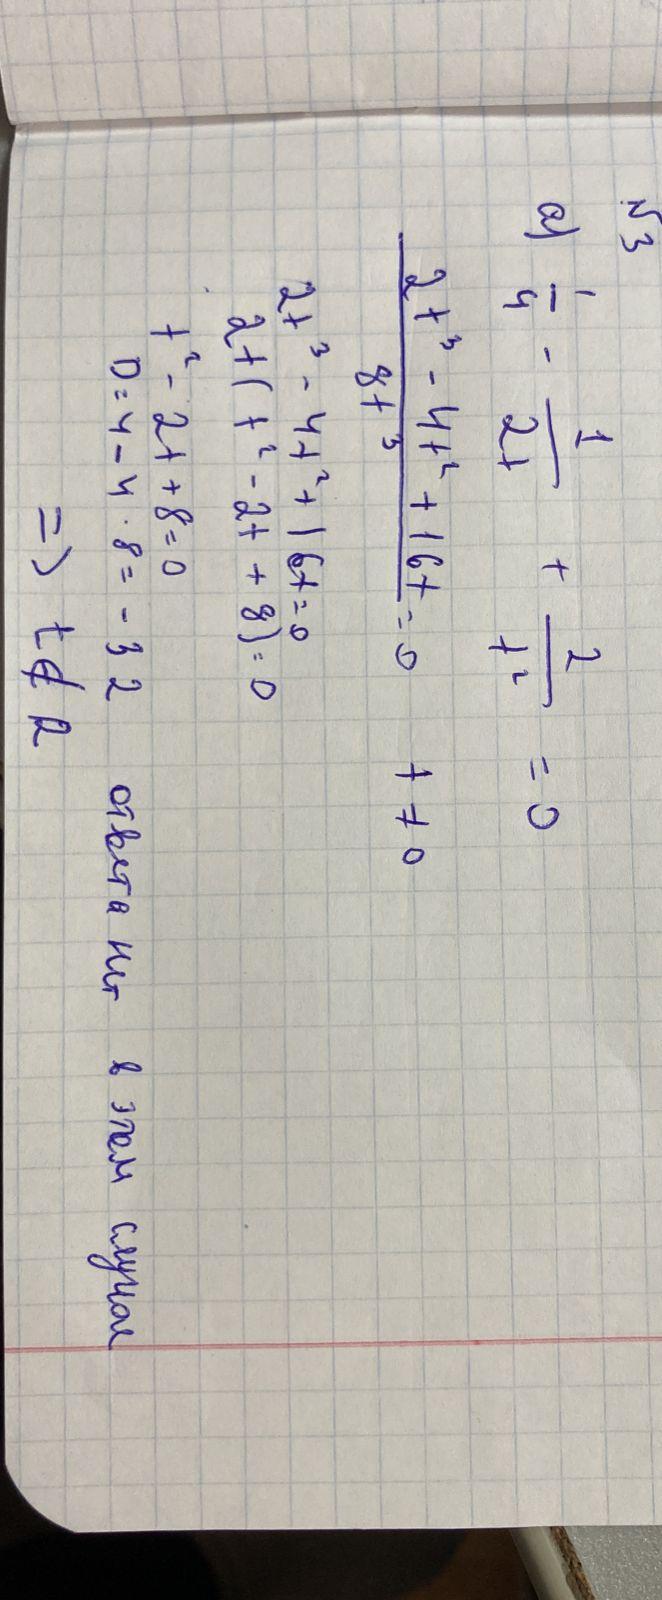 №3
а) 1/4 - 1/2t + 2/t² = 0
(2t³ - 4t² + 16t)/8t³ = 0 t ≠ 0
2t³ - 4t² + 16t = 0
2t(t² - 2t + 8) = 0
t² - 2t + 8 = 0
D = 4 - 4 · 8 = - 32 ответа нет в этом случае
=> t ∉ R